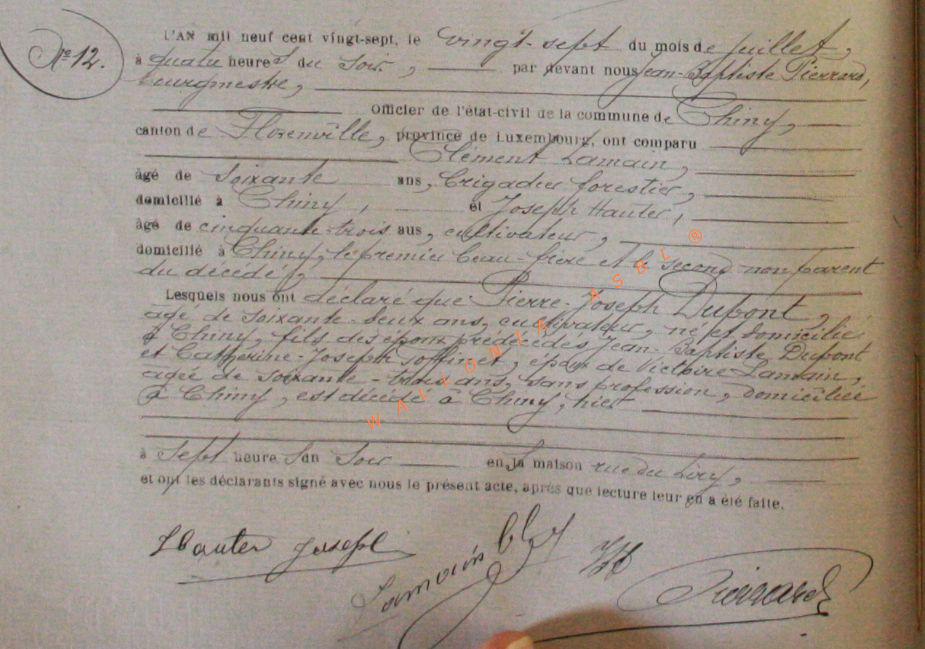 N° 12.
L'AN mil neuf cent vingt-sept, le vingt-sept du mois de juillet,
à quatre heures du soir, par devant nous Jean-Baptiste Pierrard,
bourgmestre,
Officier de l'état-civil de la commune de Chiny,
canton de Florenville, province de Luxembourg, ont comparu
Clément Lamain,
âgé de soixante ans, brigadier forestier,
domicilié à Chiny, et Joseph Hauter,
âgé de cinquante-trois ans, cultivateur,
domicilié à Chiny, le premier beau-frère et le second non parent
du décédé,
Lesquels nous ont déclaré que Pierre-Joseph Dupont,
agé de soixante-deux ans, cultivateur, né et domicilié
à Chiny, fils des époux prédécédés Jean-Baptiste Dupont
et Catherine-Joseph, époux de Victoire Lamain,
agée de soixante-trois ans, sans profession, domiciliée
à Chiny, est décédé à Chiny, hier
à sept heures du soir en sa maison rue du
et ont les déclarants signé avec nous le présent acte, après que lecture leur en a été faite.
Hauter Joseph
Lamain
Pierrard
WALLONIA ASBL ®